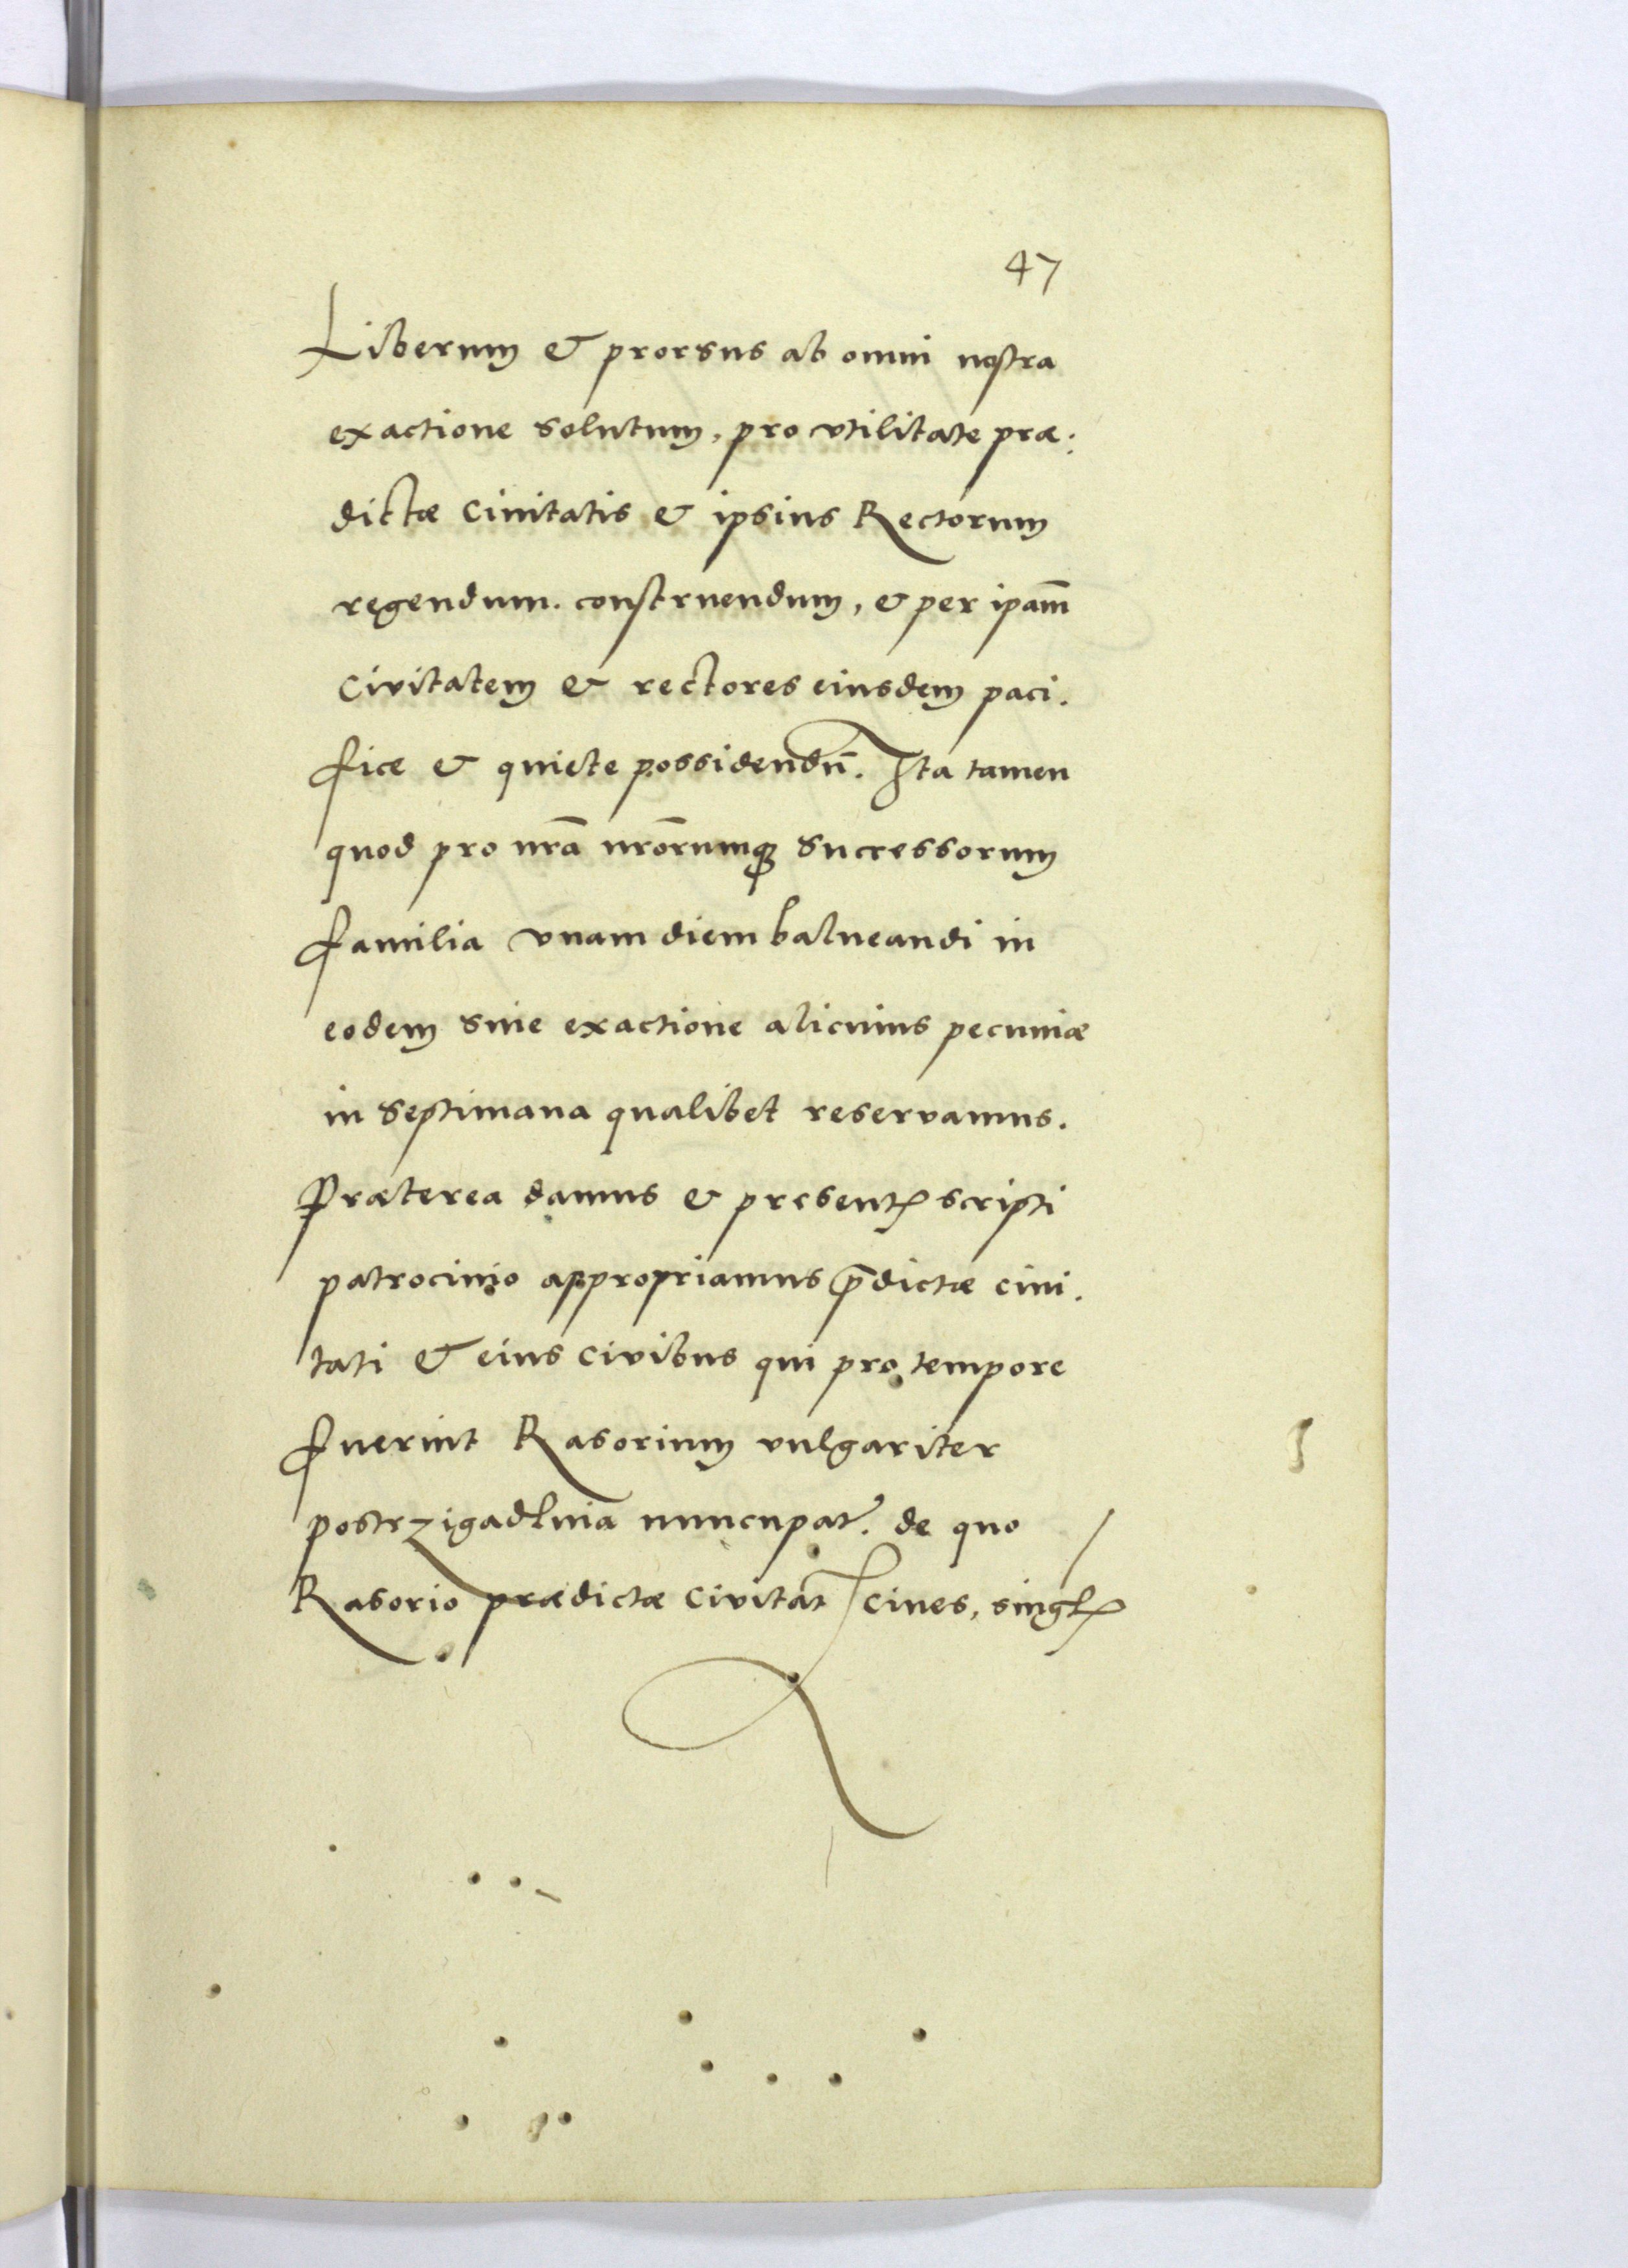 47
Liberum & prorsus ab omni nostra
exactione solutum, pro vtilitate præ:
dictæ Ciuitatis & ipsius Rectorum
regendum. construendum, & per ipam̄
Civitatem & rectores eiusdem paci.
fice & quiete possidendū. Ita tamen
quod pro nr̄a nr̄orumq successorum
familia vnam diem balneandi in
eodem sine exactione alicuius pecuniæ
in septimana qualibet reservamus.
Præterea damus & presentꝭ scripti
patrocinio appropriamus p̄dictæ ciui.
tati & eius civibus qui pro tempore
fuerint Rasorium vulgariter
postrzigadlnia nuncupat̄. de quo
Rasorio prædictæ Civitat̄ ciues, singlꝭ